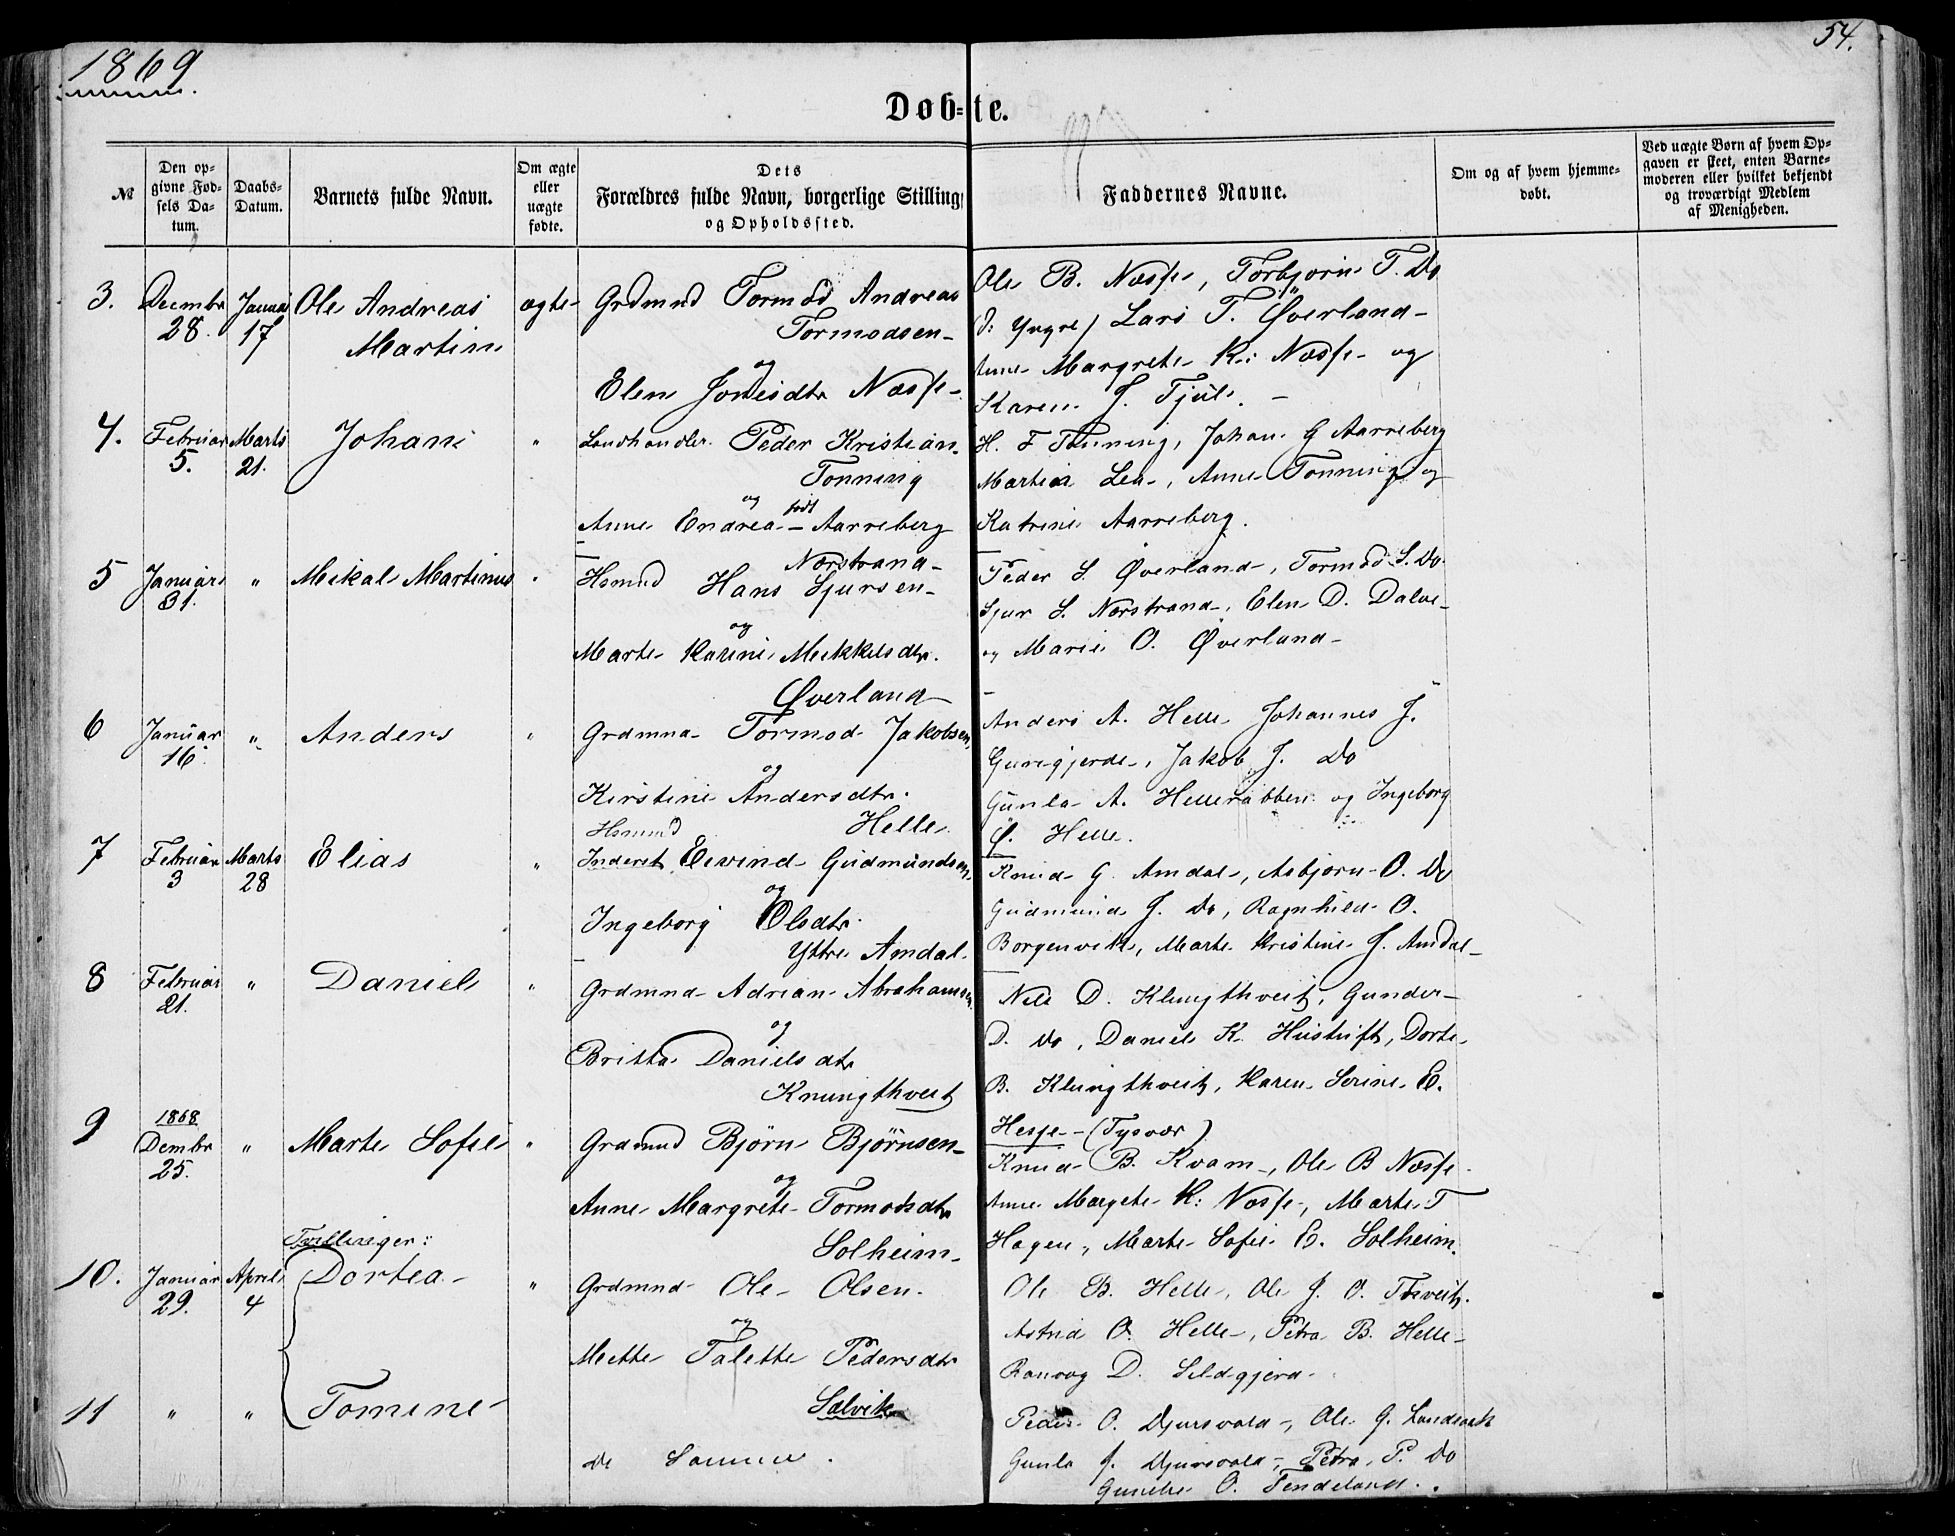 1869
54.
Døb=te.
№
Den opgivne Fødsels Datum.
Daabs-Datum.
Barnets fulde Navn.
Om ægte eller uægte fødte.
Dets Forældres fulde Navn, borgerlige Stilling og Opholdssted.
Faddernes Navne.
Om og af hvem hjemmedøbt.
Ved uægte Børn af hvem Opgaven er skeet, enten Barnemoderen eller hvilket bekjendt og troværdigt Medlem af Menigheden.
3. Decembr 28. Januar 17 Ole Andreas Martin ægte
Grdmnd Tormod Andreas
Tormodsen
og
Elen Jonesdtr Næsse
Ole B. Næsse, Torbjørn T. Do
Lars T. Øverland
Anne Margrete K: Næsse og
Karen J. Tjul.
4. Februar 5. Marts 21. Johan "
Landhandler Peder Kristian
Tonning
og født
Anne Endrea Aarreberg
H. F Tonning, Johan G Aarreberg
Martin Lea, Anne Tonning og
Katrine Aarreberg.
5 Januar 31. " Mikal Martinus "
Nørstrand
Hsmnd Hans Sjursen
og
Marte Karine Mikkelsdtr.
Øverland
Peder S. Øverland, Tormod S. Do
Sjur S. Nørstrand, Elen D. Dalve
og Marie O. Øverland
6 Januar 16. " Anders "
Grdmnd Tormod Jakobsen
og
Kirstine Andersdtr.
Helle
Anders A. Helle Johannes J.
Gunegjerde, Jakob J. Do
Gunla A. Hellerabben og Ingeborg
Ø. Helle.
7 Februar 3 Marts 28 Elias "
Hsmnd
Inderst Eivind Gudmundsen
og
Ingeborg Olsdtr.
Yttre Amdal
Knud G. Amdal, Asbjørn O. Do
Gudmund J. Do, Ragnhild O.
Borgenvik, Marte Kristine J. Amdal
8 Februar 21. " Daniel "
Grdmnd Adrian Abrahamsen
og
Britta Danielsdtr
Knungthveit
Nils D. Klungthveit, Gunder
D. Do, Daniel K. Hustuft, Dorte
B. Klungthveit, Karen Serine E.
Hesse (Tysvær)
9 1868 Dembr 25. " Marte Sofie "
Grdmnd Bjørn Bjørnsen
og
Anne Margrete Tormodsdtr
Solheim
Knud B. Kvam, Ole B Næsse
Anne Margete K: Næsse, Marte T
Hagen, Marte Sofie E. Solheim.
Tvillinger:
10. Januar 29. April 4 Dortea "
Grdmnd Ole Olsen.
og
Mette Talette Pedersdtr
Sælvik
Ole B. Helle, Ole J. O. Tveit.
Astrid O. Helle, Petra B. Helle
Ranvog D. Sildgjerd
11 " " Tomine
de Samme.
Peder O. Djursvold, Ole G. Landaak
Gunla J. Djursvold, Petra P. Do
O. Tendeland.